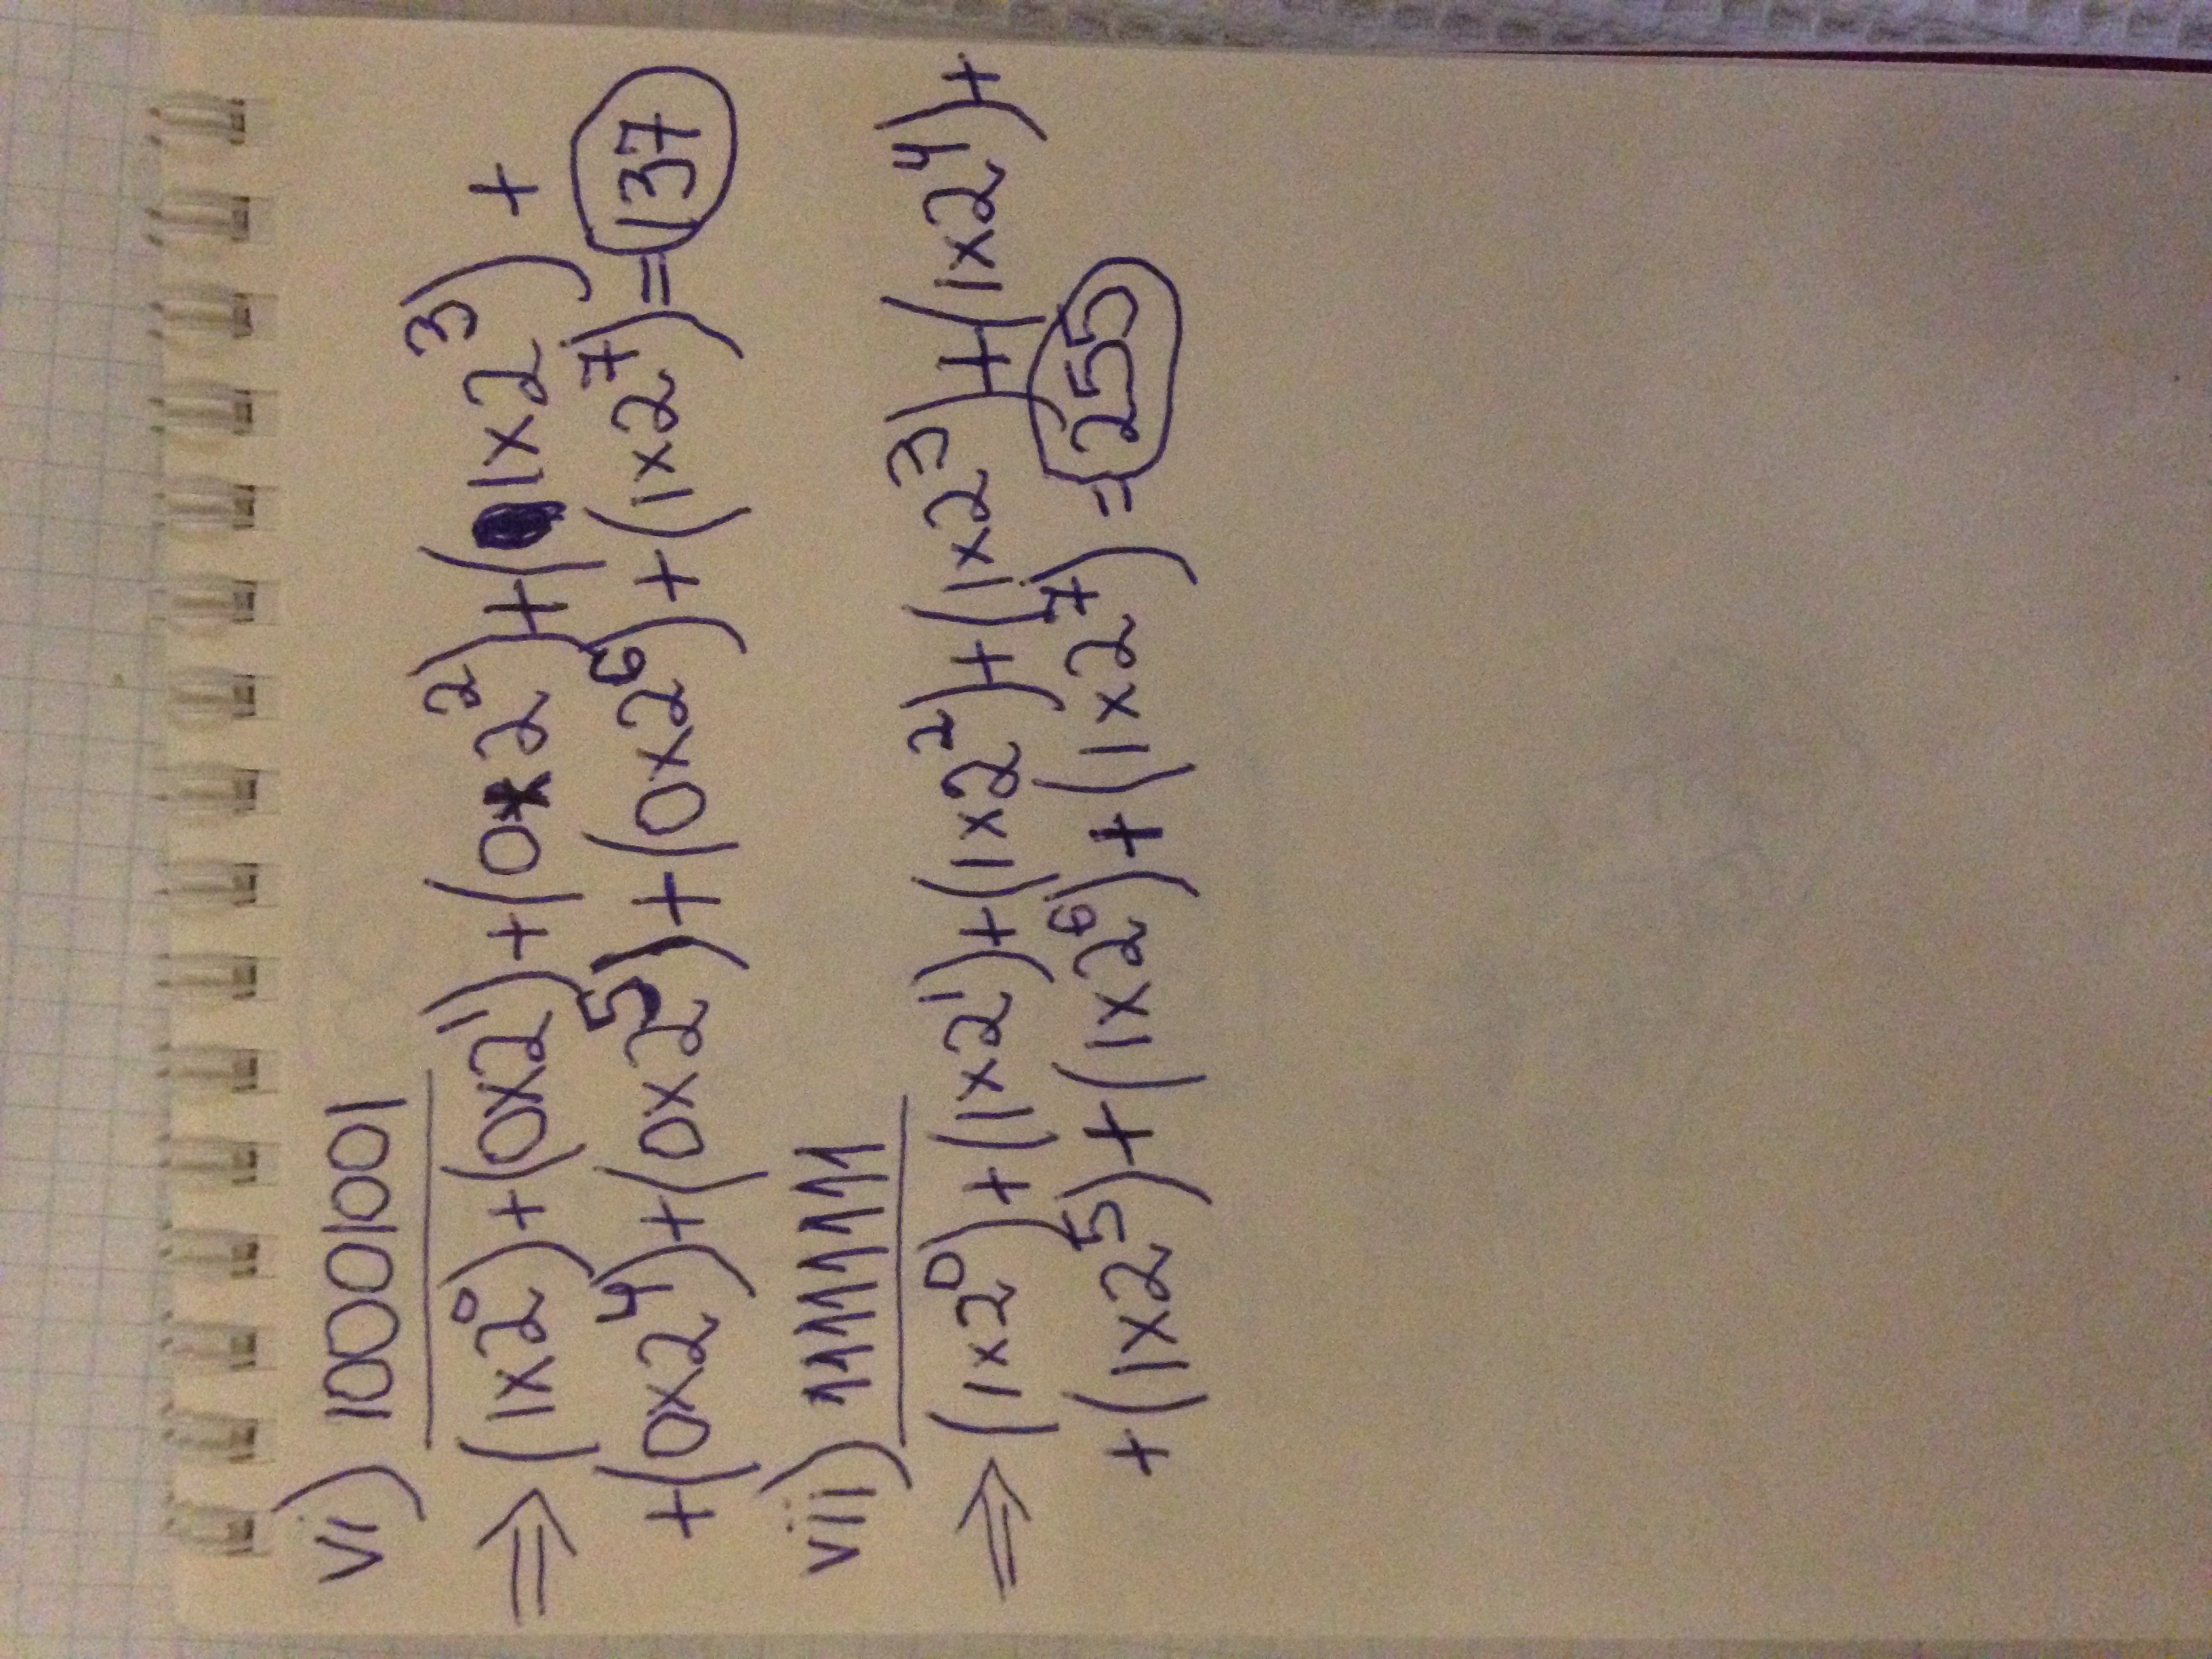 vi) 10001001
⇒ (1x2⁰)+(0x2¹)+(0x2²)+(1x2³) +
+(0x2⁴)+(0x2⁵)+(0x2⁶)+(1x2⁷)=137
vii) 11111111
⇒ (1x2⁰)+(1x2¹)+(1x2²)+(1x2³)+(1x2⁴)+
+(1x2⁵)+(1x2⁶)+(1x2⁷)=255